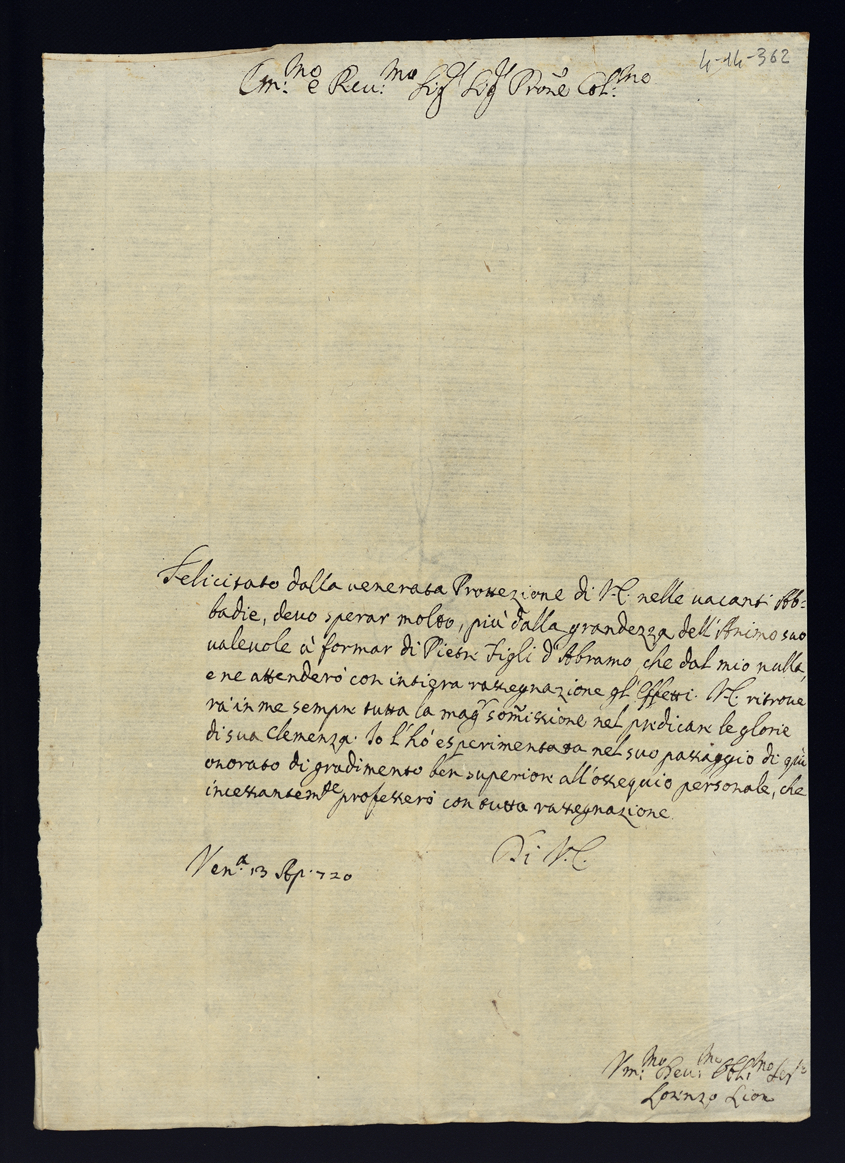 4-14-362
Em:mo e Reu:mo Sigr Sigr Prone Col:mo
Felicitato dalla venerata Prottezione di V.E. nelle vacanti Ab=
badie, devo sperar molto, più dalla grandezza dell'Animo suo
valevole à formar di Pietre Figli d'Abramo, che dal mio nulla,
e ne attenderò con intiera rassegnazione gl'Effetti. V.E. ritrove
rà in me sempre tutta la magr somissione nel predicare le glorie
di sua Clemenza. Io l'hó esperimentata nel suo passaggio di quì
onorato di gradimento ben superiore all'ossequio personale, che
incessantemte professerò con tutta rassegnazione
Di V.E.
Vena 13 Ap. 720
Vm:mo Deu:mo Obl:mo Serre
Lorenzo Lion